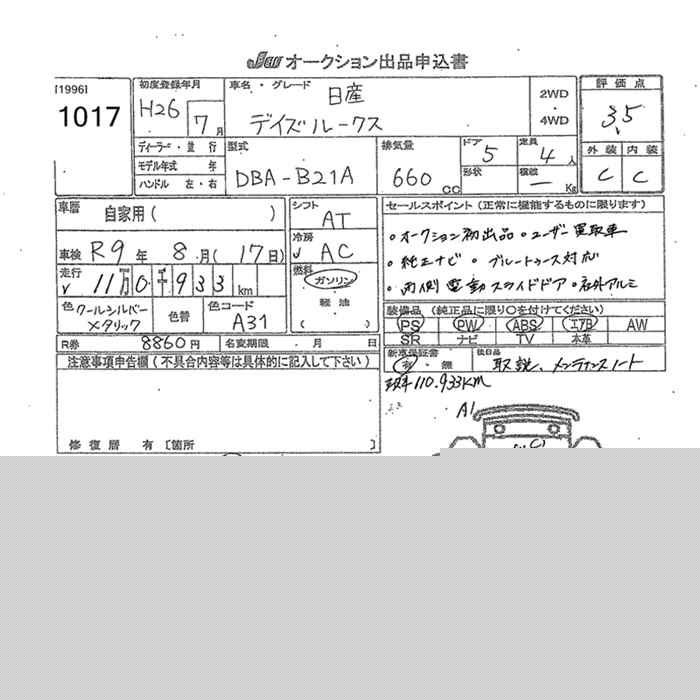 JBW オークション出品申込書
[1996]
1017
初度登録年月
H26 7 月
車名・グレード
日産
デイズルークス
2WD
・
4WD
評価点
3.5
外装 内装
C C
ディーラー・並行
モデル年式 年
ハンドル 左・右
型式
DBA-B21A
排気量
660 CC
ドア
5
形状
定員
4 人
積載
ー Kg
車歴
自家用( )
シフト
AT
車検 R9 年 8 月(17日)
冷房
✓ AC
走行
✓ 11万0千933 km
燃料
ガソリン
軽油
( )
色 クールシルバー
メタリック
色替
色コード
A31
R券 8860円 名変期限 ・ 月 ・ 日
セールスポイント(正常に機能するものに限ります)
。オークション初出品 。ユーザー買取車
。純正ナビ 。ブルートゥース対応
。両側電動スライドドア 。社外アルミ
装備品 (純正品に限り○を付けてください)
PS PW ABS エアB AW
SR ナビ TV 本革
新車保証書
有・無
後日品
取説、メンテナンスノート
110.933KM
注意事項申告欄(不具合内容等は具体的に記入して下さい)
修復歴 有〔箇所 〕
A1